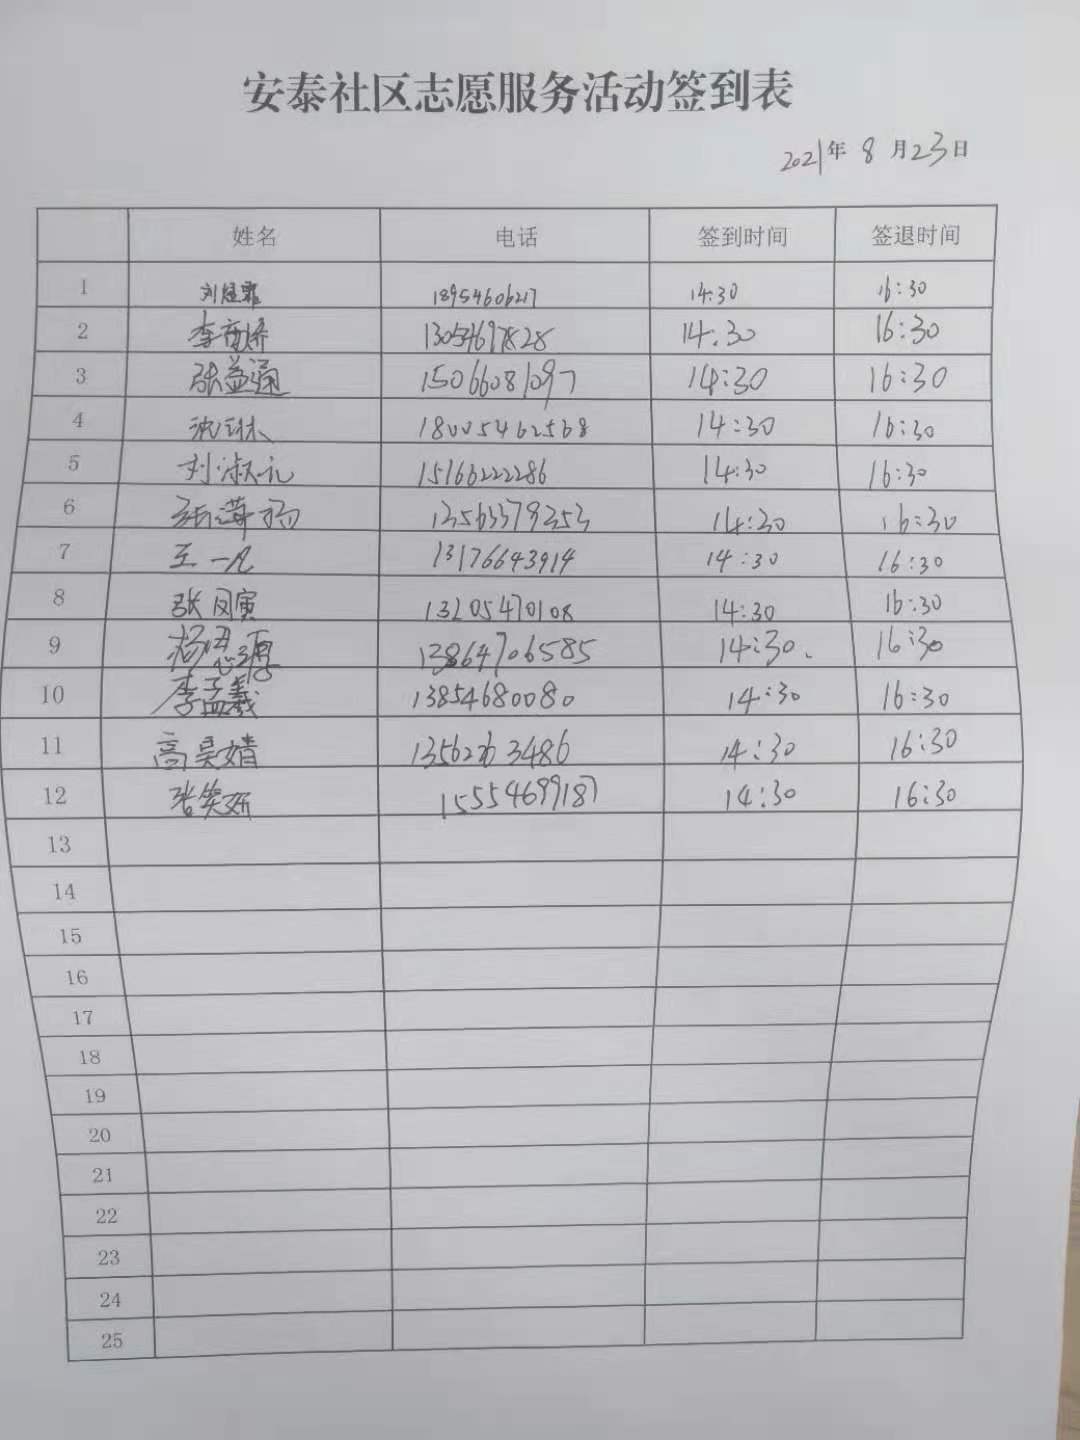 安泰社区志愿服务活动签到表
2021年 8 月23日
姓名 电话 签到时间 签退时间
1 18954606217 14:30 16:30
2 14:30 16:30
3 张益通 15066081097 14:30 16:30
4 沈琳 18005462568 14:30 16:30
5 刘淑礼 15166222286 14:30 16:30
6 13563379353 14:30 16:30
7 王一凡 13176643914 14:30 16:30
8 张凤寅 13205470108 14:30 16:30
9 杨思源 13864706585 14:30. 16:30
10 李孟羲 13854680080 14:30 16:30
11 高昊婧 13562263486 14:30 16:30
12 张笑妍 15554699187 14:30 16:30
13
14
15
16
17
18
19
20
21
22
23
24
25